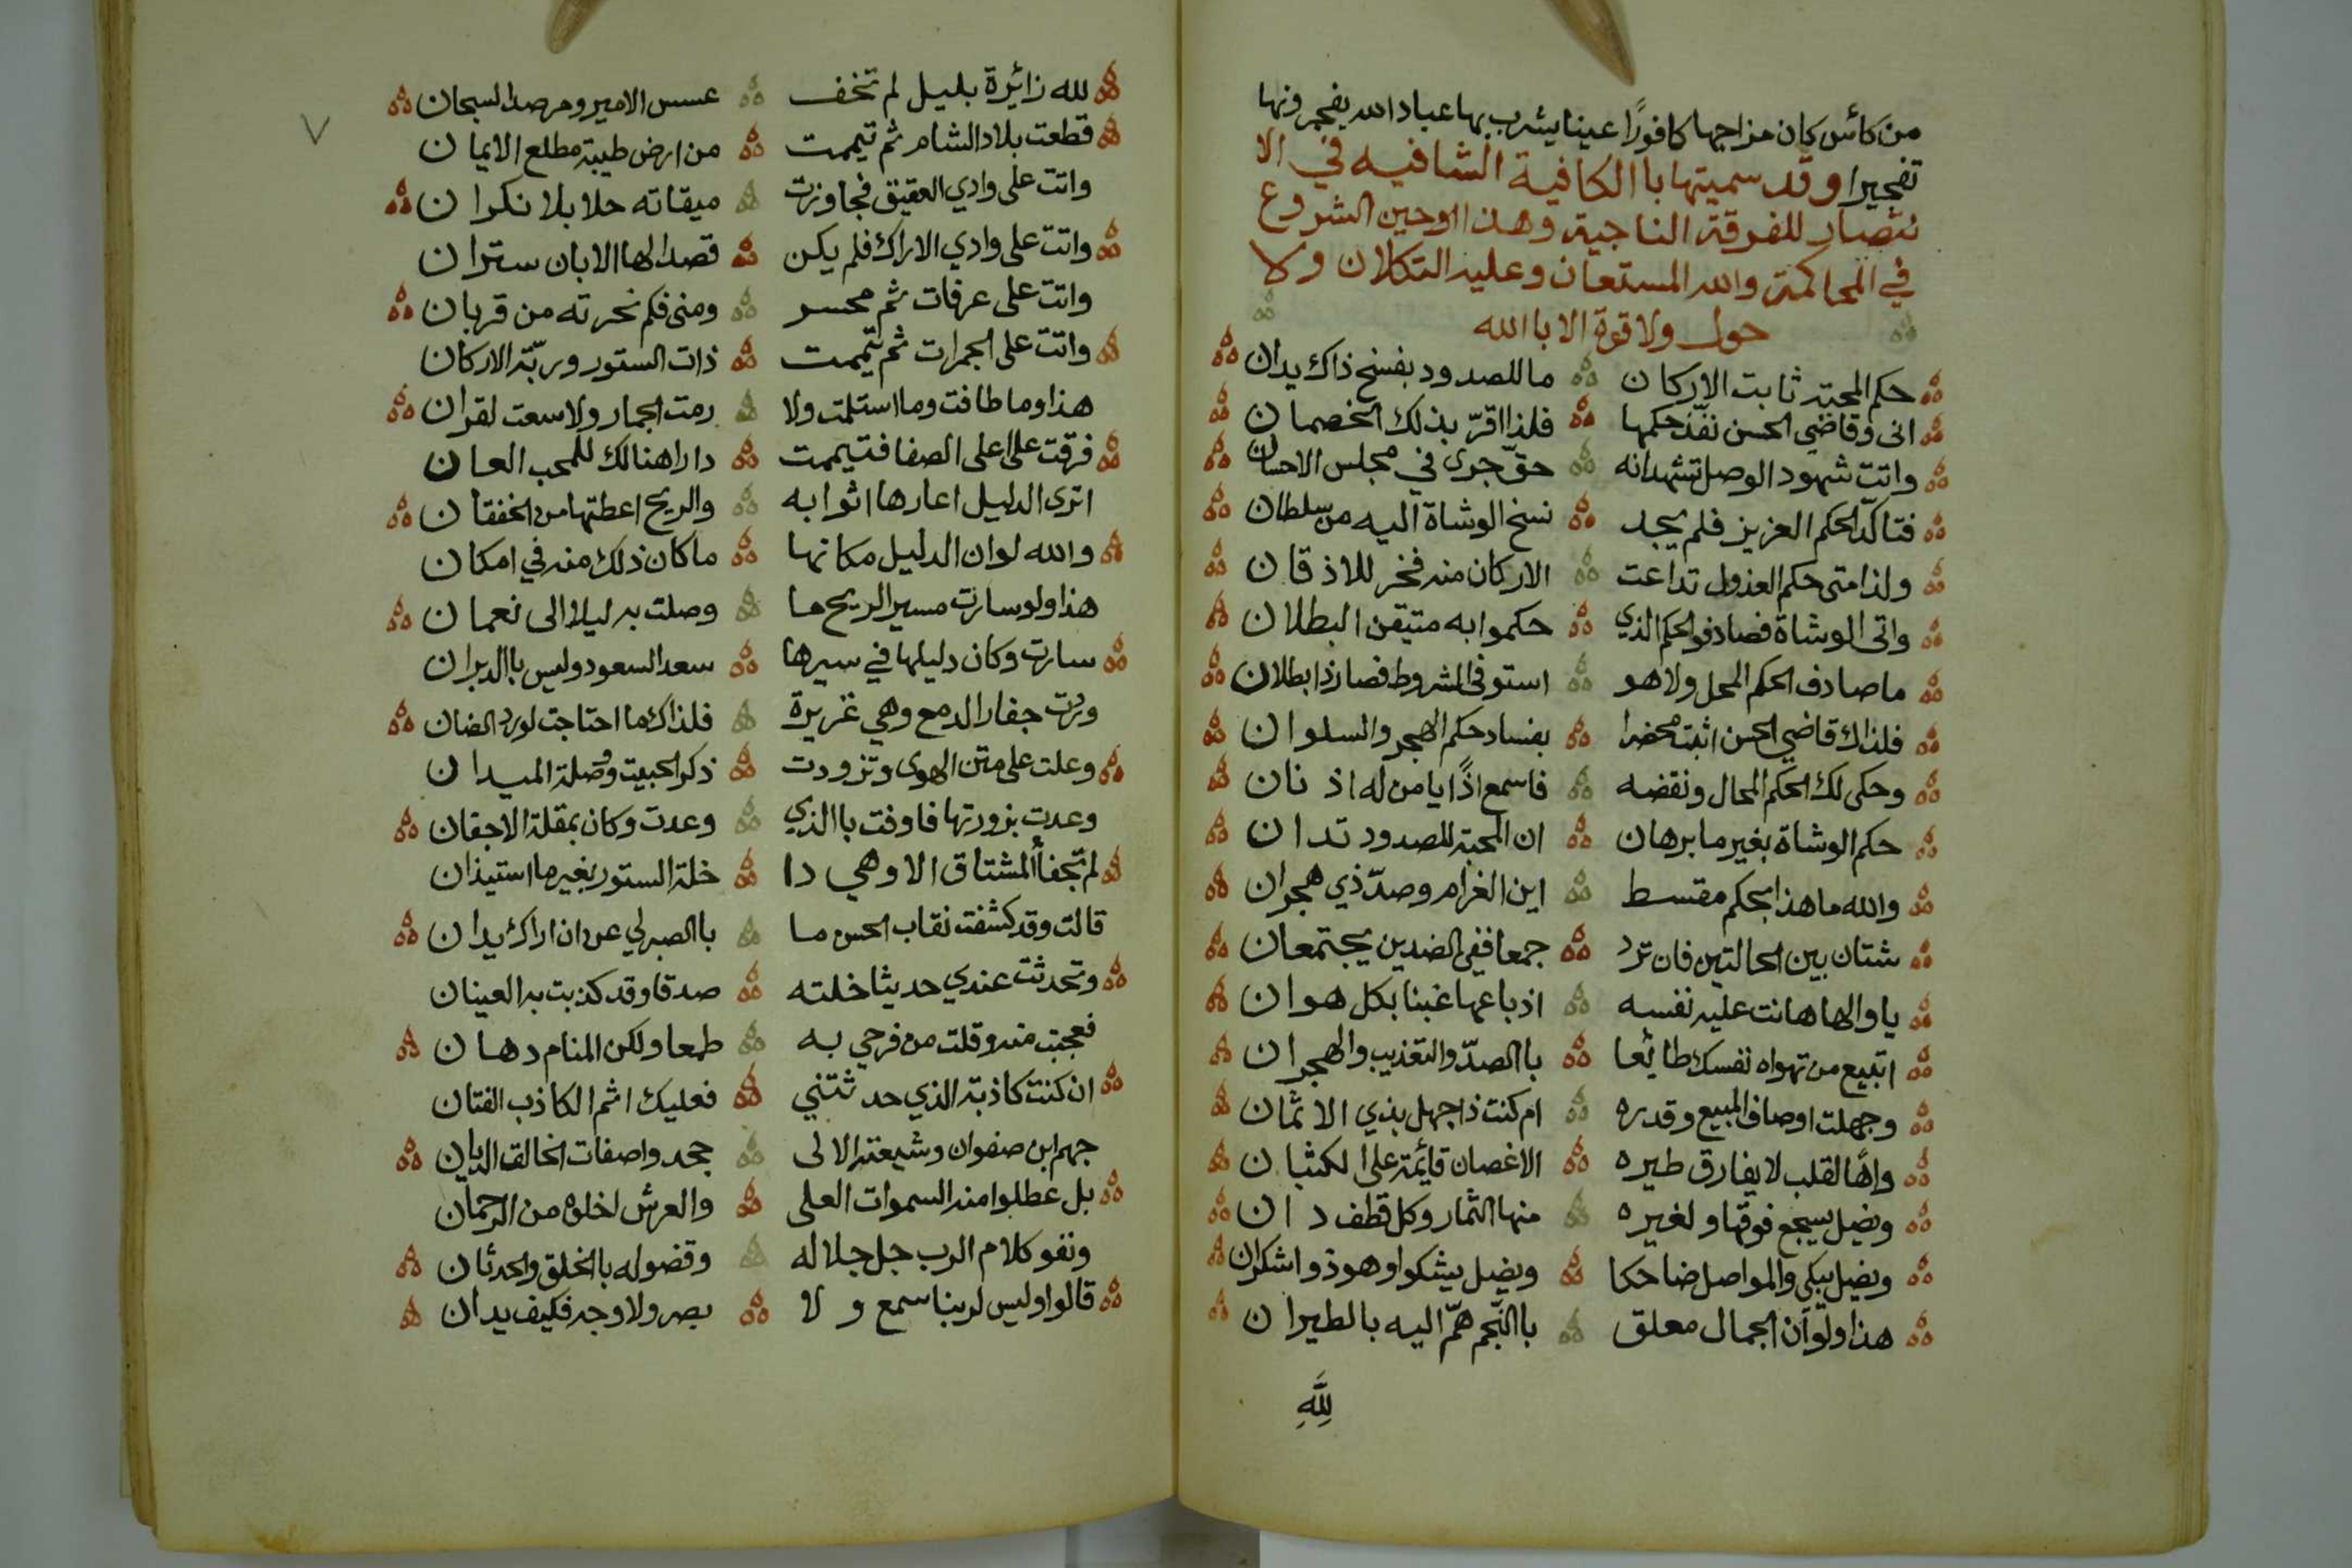 من كأس كان مزاجها كافورًا عينا يشرب بها عباد الله يفجرونها
تفجيرا وقد سميتها باالكافية الشافيه في الا
نتصار للفرقة الناجية وهذا اوحين الشروع
في المحاكمة والله المستعان وعليه التكلان ولا
حول ولا قوة الا باالله
حكم المحبة ثابت الاركان ما للصدود بفسخ ذاك يدان
انى وقاضي الحسن نفّذ حكمها فلذا اقرّ بذلك الخصمان
واتت شهود الوصل تشهد انه حقّ جرى في مجلس الاحسان
فتاكّد الحكم العزيز فلم يجد نسخ الوشاة اليه من سلطان
ولذا متى حكم العذول تداعت الاركان منه فخر للاذقان
واتى الوشاة فصادفو الحكم الذي حكموا به متيقن البطلان
ما صادف الحكم المحل ولا هو استوفى الشروط فصار ذا بطلان
فلذاك قاضي الحسن اثبت محضرا بفساد حكم الهجر والسلوان
وحكى لك الحكم المحال ونقضه فاسمع اذًا يا من له اذنان
حكم الوشاة بغير ما برهان ان المحبة للصدود تدان
والله ما هذا بحكم مقسط اين الغرام وصدّ ذي هجران
شتان بين الحالتين فان ترد جمعا ففي الضدين يجتمعان
يا والها هانت عليه نفسه اذ باعها غبنا بكل هوان
اتبيع من تهواه نفسك طائعا باالصدّ والتعذيب والهجران
وجهلت اوصاف المبيع وقدره ام كنت ذا جهل بذي الاثمان
واهًا لقلب لا يفارق طيره الاغصان قائمة على الكثبان
ويضل يسجع فوقها ولغيره منها الثمار وكل قطف دان
ويضل يبكي والمواصل ضاحكا ويضل يشكوا وهو ذو اشكران
هذا ولو ان الجمال معلق باالنّجم همّ اليه بالطيران
لِلَّهِ
٧
لله زائرة بليل لم تخف عسس الامير ومرصد السجان
قطعت بلاد الشام ثم تيممت من ارض طيبة مطلع الايمان
واتت على وادي العقيق فجاوزت ميقاته حلا بلا نكران
واتت على وادي الاراك فلم يكن قصدا لها الا بان ستران
واتت على عرفات ثم محسر ومنى فكم نحرته من قربان
واتت على الجمرات ثم تيممت ذات الستور وربّة الاركان
هذا وما طافت وما استلمت ولا رمت الجمار ولا سعت لقران
فرقت على اعلى الصفا فتيممت دارا هنالك للمحب العان
اترى الدليل اعارها اثوابه والريح اعطتها من الخفقان
والله لو ان الدليل مكانها ما كان ذلك منه في امكان
هذا ولو سارت مسير الريح ما وصلت به ليلا الى نعمان
سارت وكان دليلها في سيرها سعد السعود وليس باالدبران
وردت جفار الدمع وهي غزيرة فلذاك ما احتاجت لورد الضان
وعلت على متن الهوى وتزودت ذكر الحبيب وصلة الميدان
وعدت بزورتها فاوفت باالذي وعدت وكان بمقلة الاجفان
لم تجفأ المشتاق الا وهي دا خلة الستور بغير ما استيذان
قالت وقد كشفت نقاب الحسن ما باالصبر لي عن ان اراك يدان
وتحدثت عندي حديثا خلته صدقا وقد كذبت به العينان
فعجبت منه وقلت من فرحي به طمعا ولكن المنام دهان
ان كنت كاذبة الذي حدثتني فعليك اثم الكاذب الفتان
جهم ابن صفوان وشيعته الالى جحدوا صفات الخالق الديان
بل عطلوا منه السموات العلى والعرش اخلوه من الرحمان
ونفو كلام الرب جل جلاله وقضو له باالخلق والحدثان
قالوا وليس لربنا سمع ولا بصر ولا وجه فكيف يدان